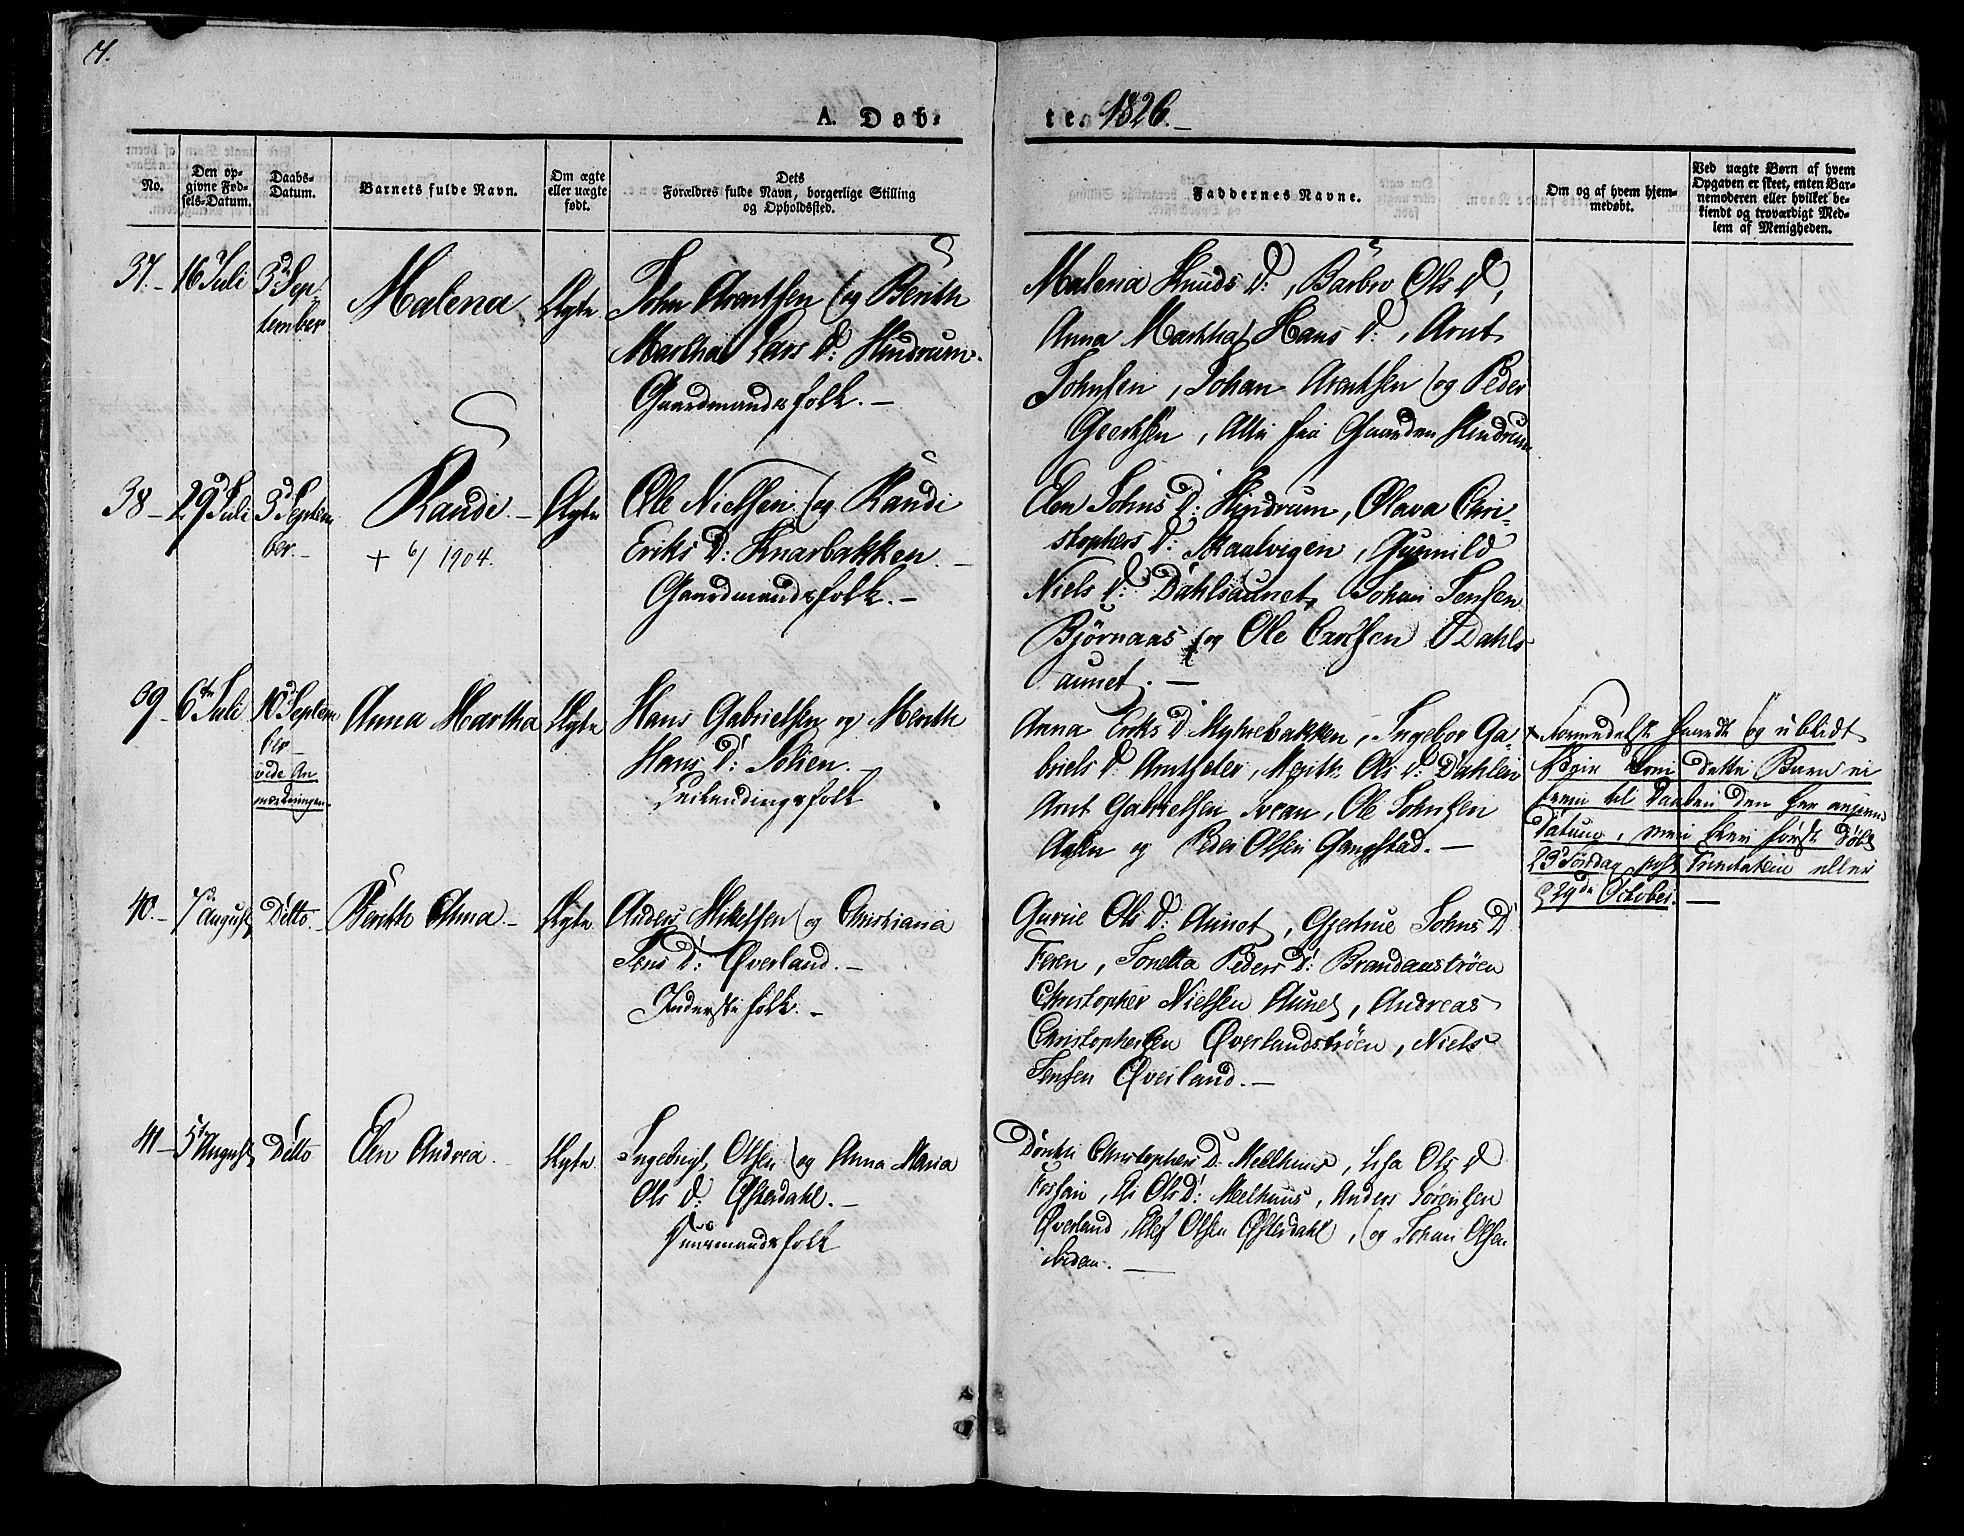 7.
A. Døb-
te. 1826.
No.
Den op-
givne Fød-
sels-Datum.
Daabs-
Datum.
Barnets fulde Navn.
Om ægte
eller uægte
født.
Dets
Forældres fulde Navn, borgerlige Stilling
og Opholdssted.
Faddernes Navne.
Om og af hvem hjem-
medøbt.
Ved uægte Børn af hvem
Opgaven er skeet, enten Bar-
nemoderen eller hvilket be-
kiendt og troværdigt Med-
lem af Menigheden.
37.
16 Juli
3d Sep-
tember
Malena
Ægte
John Arentsen og Berith
Martha Lars D: Hindrum.
Gaardmandsfolk.
Malena Knuds D:, Barbro Ols D,
Anna Martha Hans D:, Arnt
Johnsen, Johan Arentsen og Peder
Geertsen, Alle fra Gaarden Hindrum
38
29 Juli
3d Septem
ber.
Randi.
+ 6/ 1904.
Ægte
Ole Nielsen og Randi
Eriks D: Knarbakken.
Gaardmandsfolk.
Elen Johns D: Hindrum, Olava Chri-
stophers D: Skaalvigen, Gunnild
Niels D: Dahlsaunet, Johan Jensen
Bjørnaas og Ole Carlsen Dahls-
aunet.
39
6te Juli
10d Septem
ber
vide An
mærkningen.
Anna Martha
Ægte
Hans Gabrielsen og Merith
Hans D:
Leilændingsfolk
Anna Eriks D Myhrebakken, Ingebor Ga-
briels D: Merith Ols D: Dahlen
Arnt Gabrielsen Ole Johnsen
Aasen og Peder Olsen Gangstad.
Formedelst haardt og ublidt
Veir kom dette Barn ei
frem til Daaben den her angivne
Datum, men blev først døbt
23d Søndag post Trinitatem eller
d 29de October.
40.
7de August
Ditto.
Berith Anna
Ægte
Anders Mikelsen og Christiana
Jens D: Øverland.
Inderstefolk.
Gurue Ols D: Aunet, Gjertrue Johns D
Feren, Jonetta Peders D: Brandaastrøen
Christopher Nielsen Aunet, Andreas
Christophersen Øverlandstrøen, Niels
Jensen Øverland.
41
5te August
Ditto
Elen Andrea.
Ægte
Ingebrigt Olsen og Anna Maria
Ols D: Østerdahl.
Christophers D. Meelhuus, Lisa Ols D
Ols D: Meelhuus, Anders Sørensen
Øverland, Olsen Østerdahl, og Johan Olsen
ibidem.